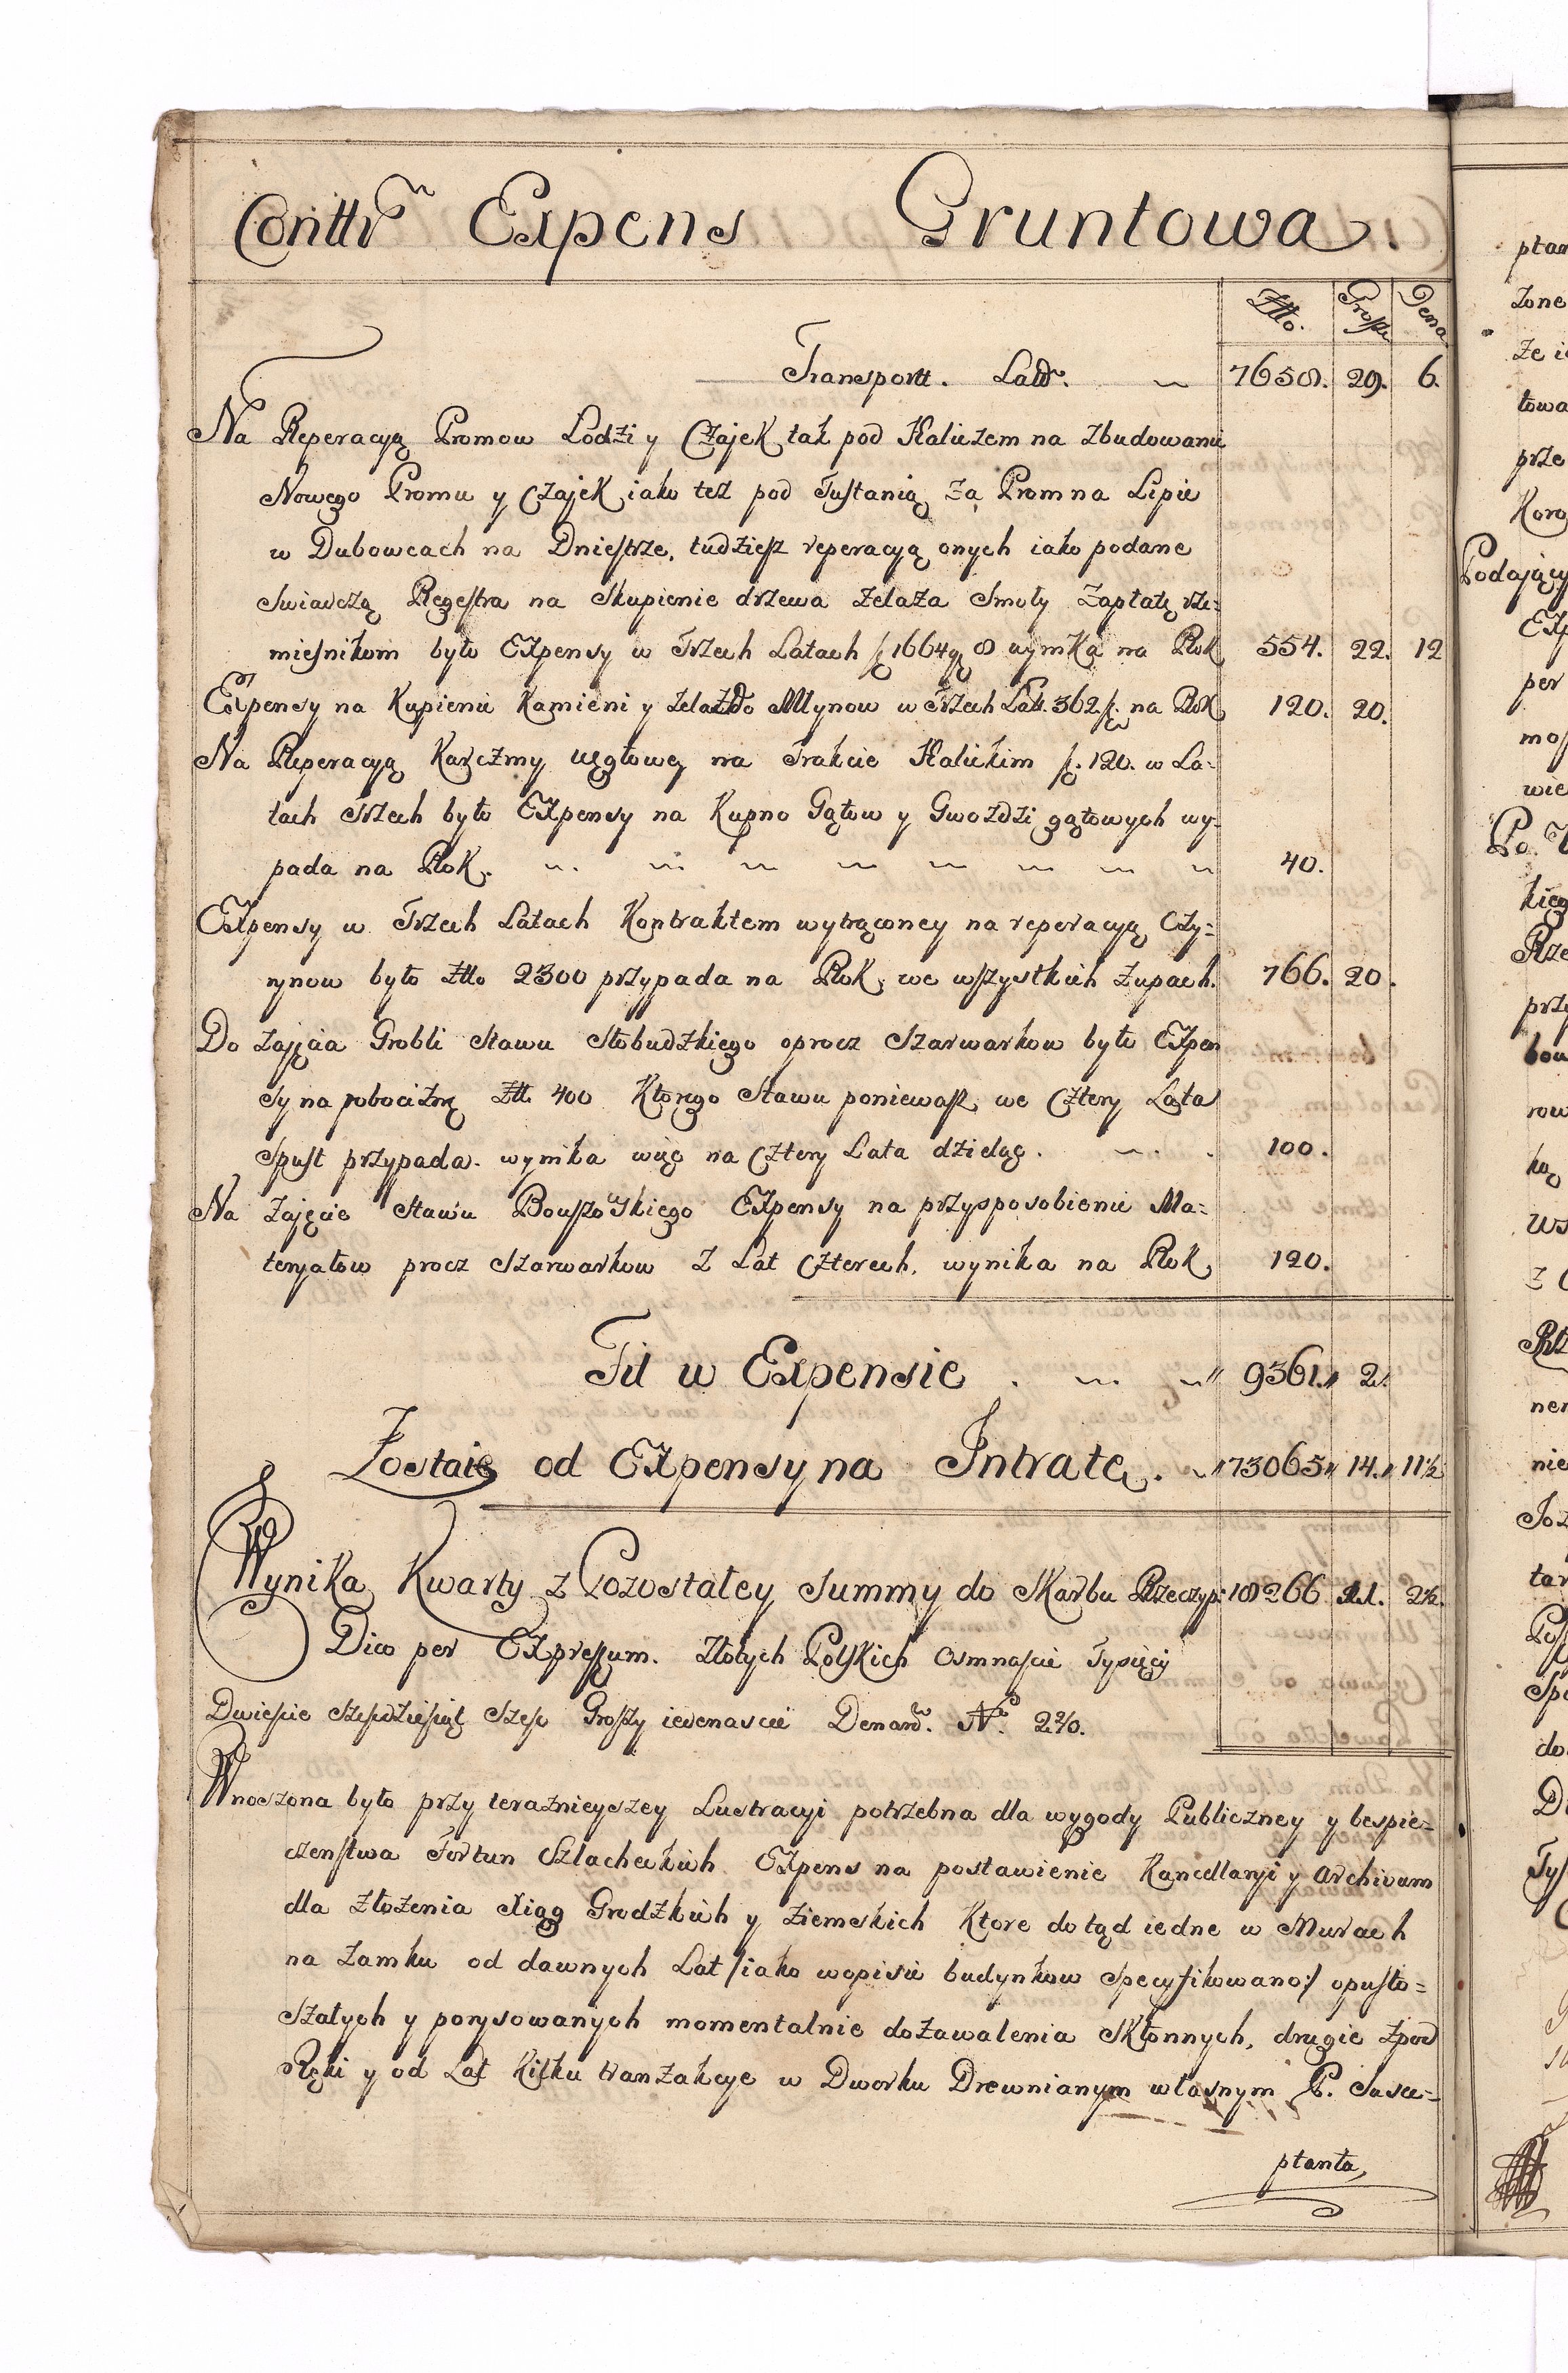 Conttr Expens Gruntowa.
Ztto. Groszy Dena
Transportt. Latt. 7658. 29. 6.
Na Reperacyą Promow Lodzi y Czajek tak pod Haliczem na zbudowanie
Nowego Promu y Czajek iako tez pod Tustanią za Prom na Lipie
w Dubowcach na Dniestrze, tudziesz reperacyą onych iako podane
swiadczą Regestra na Skupienie drzewa zelaza Smoły Zapłatę rze:
miesnikom było Expensy w Trzech Latach f 1664 g 8 wynika na Rok 554. 22. 12
Expensy na Kupienie Kamieni y zelaza do Młynow w Trzech Latt. 362 f. na Rok 120. 20.
Na Reperacyą Karczmy węgłowey na Trakcie Halickim f. 120. w La-
tach trzech było Expensy na Kupno Gątow y Gwozdzi gątowych wy-
pada na Rok. 40.
Expensy w Trzech Latach Kontraktem wytrąconey na reperacyą Czy:
rynow było Ztto 2300 przypada na Rok we wszystkich Zupach. 766. 20.
Do zajęcia Grobli Stawu Słobudzkiego oprocz Szarwarkow było Expen
sy na pobociznę Ztt. 400 Ktorego Stawu poniewasz we Cztery Lata
Spust przypada. wynika więc na Cztery Lata dzieląc. 100.
Na Zajęcie Stawu Bouszowskiego Expensy na przysposobienie Ma:
teryałow procz Szarwarkow z Lat Czterech. wynika na Rok 120.
Fit w Expensie 9361. 2.
Zostaie od Expensy na Intratę. 73065 14. 11½
Wynika Kwarty z Pozostałey Summy do Skarbu Rzeczyp: 18266 11. 2½.
Dico per Expressum. Złotych Polskich Osmnascie Tysięcy
Dwiescie szescdziesiąt szesc Groszy iedenascie Denard. No. 2½.
Wnoszona było przy teraznieyszey Lustracyi potrzebna dla wygody Publiczney y bespie=
czenstwa Fortun Szlacheckich Expens na postawienie Kancellaryi y Archivum
dla złozenia xiąg Grodzkich y ziemskich Ktore dotąd iedne w Murach
na Zamku od dawnych Lat /iako w opisie budynkow specyfikowano:/ opusto=
szałych y porysowanych momentalnie do zawalenia skłonnych, drugie zpod
Ręki y od Lat kilku tranzakcye w Dworku Drewnianym własnym P. Susce=
ptanta,